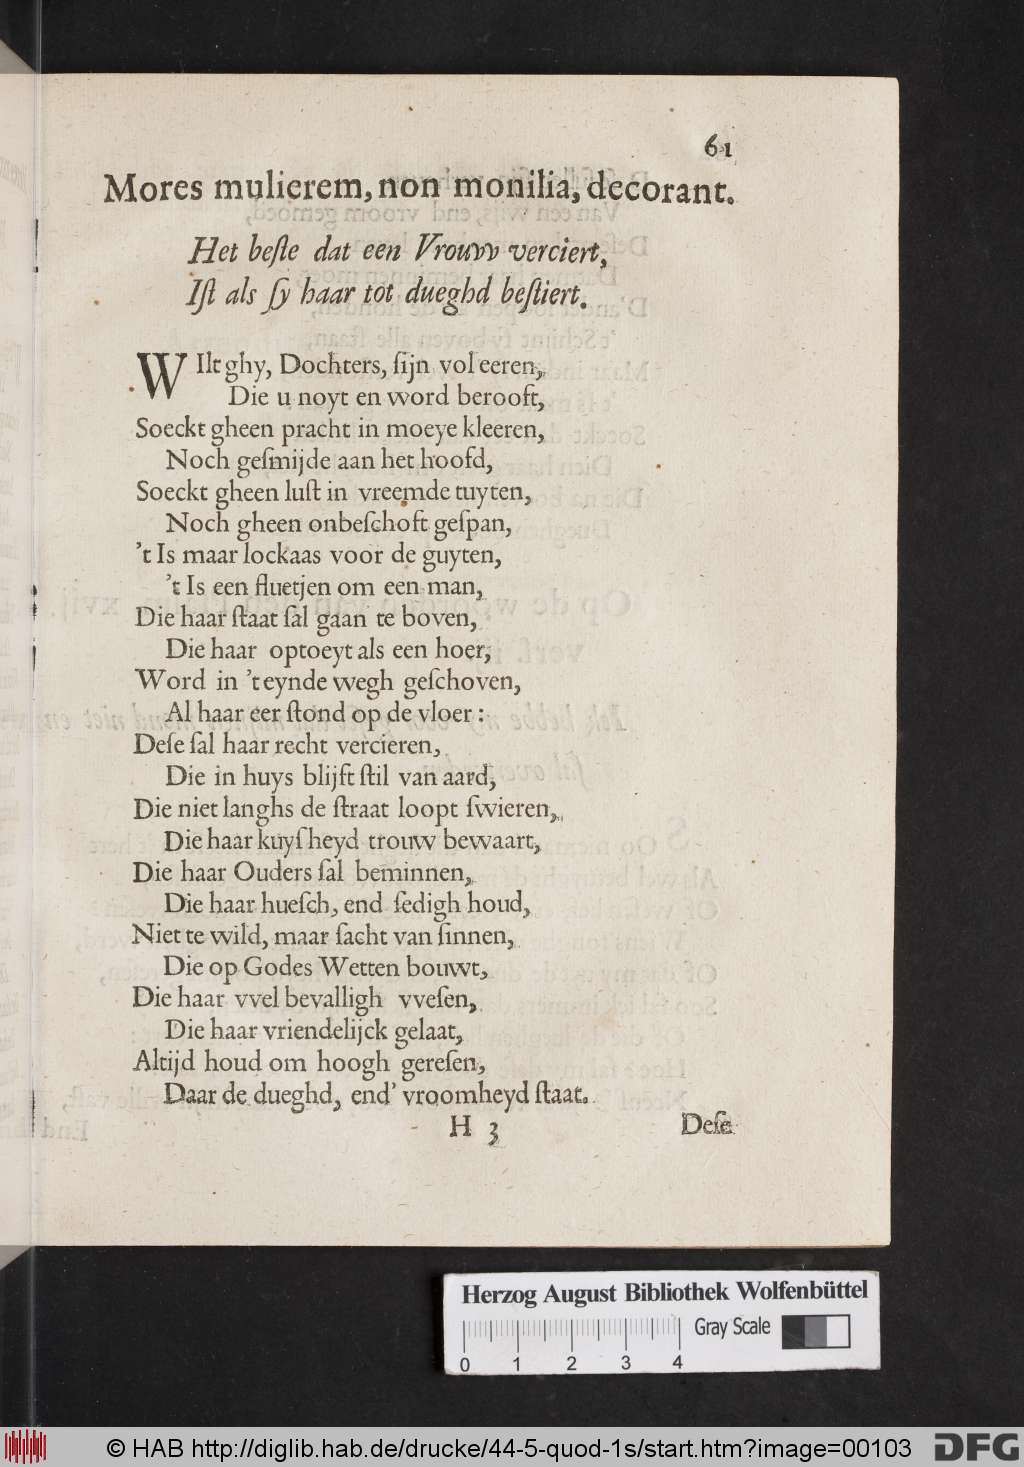 61
Mores mulierem, non monilia, decorant.
Het beſte dat een Vrouvv verciert,
Iſt als ſy haar tot dueghd beſtiert.
WIlt ghy, Dochters, ſijn vol eeren,
Die u noyt en word berooft,
Soeckt gheen pracht in moeye kleeren,
Noch geſmijde aan het hoofd,
Soeckt gheen luſt in vreemde tuyten,
Noch gheen onbeſchoft geſpan,
't Is maar lockaas voor de guyten,
't Is een fluetjen om een man,
Die haar ſtaat ſal gaan te boven,
Die haar optoeyt als een hoer,
Word in 't eynde wegh geſchoven,
Al haar eer ſtond op de vloer:
Deſe ſal haar recht vercieren,
Die in huys blijft ſtil van aard,
Die niet langhs de ſtraat loopt ſwieren,
Die haar kuyſheyd trouw bewaart,
Die haar Ouders ſal beminnen,
Die haar hueſch, end ſedigh houd,
Niet te wild, maar ſacht van ſinnen,
Die op Godes Wetten bouwt,
Die haar vvel bevalligh vveſen,
Die haar vriendelijck gelaat,
Altijd houd om hoogh gereſen,
Daar de dueghd, end' vroomheyd ſtaat.
H 3 Deſe
Herzog August Bibliothek Wolfenbüttel
Gray Scale
0 1 2 3 4
© HAB http://diglib.hab.de/drucke/44-5-quod-1s/start.htm?image=00103 DFG